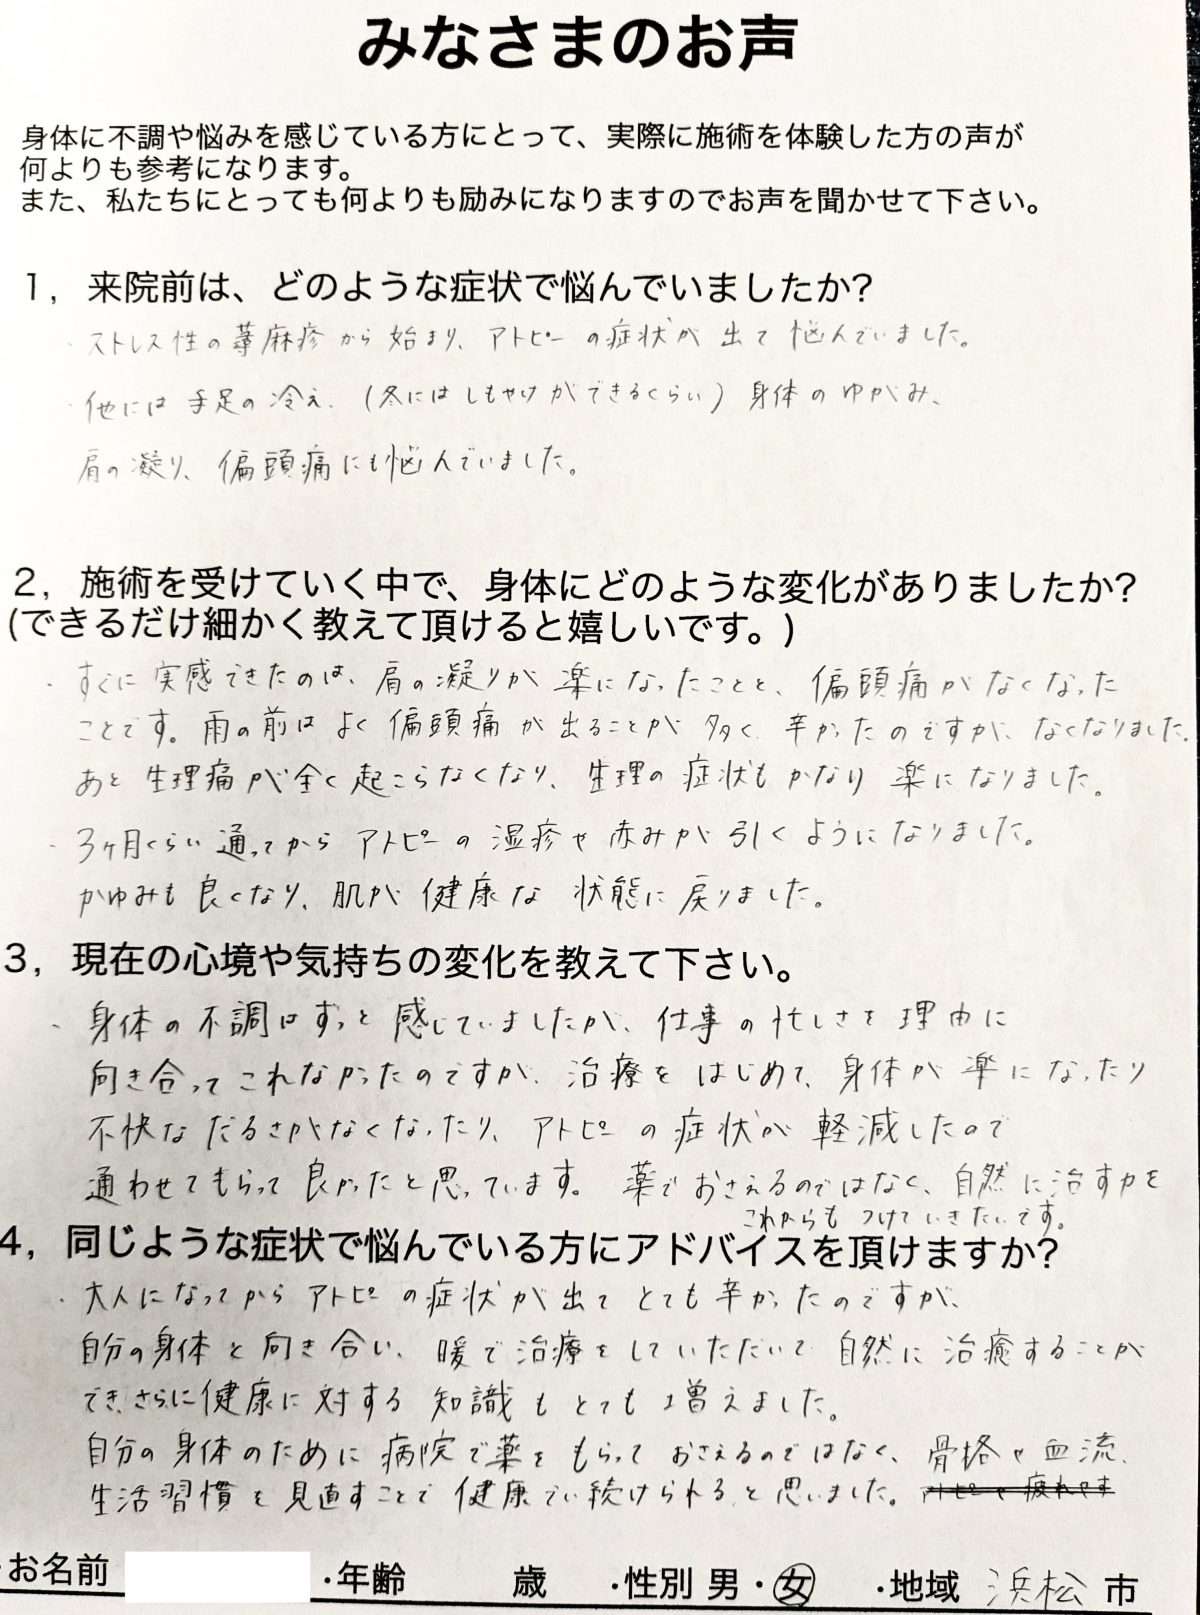 みなさまのお声
身体に不調や悩みを感じている方にとって、実際に施術を体験した方の声が
何よりも参考になります。
また、私たちにとっても何よりも励みになりますのでお声を聞かせて下さい。
1，来院前は、どのような症状で悩んでいましたか?
・ストレス性の蕁麻疹から始まり、アトピーの症状が出て悩んでいました。
・他には手足の冷え、(冬にはしもやけができるくらい)身体のゆがみ、
肩の凝り、偏頭痛にも悩んでいました。
2，施術を受けていく中で、身体にどのような変化がありましたか?
(できるだけ細かく教えて頂けると嬉しいです。)
・すぐに実感できたのは、肩の凝りが楽になったことと、偏頭痛がなくなった
ことです。雨の前はよく偏頭痛が出ることが多く、辛かったのですが、なくなりました。
あと生理痛が全く起こらなくなり、生理の症状もかなり楽になりました。
・3ヶ月くらい通ってからアトピーの湿疹や赤みが引くようになりました。
かゆみも良くなり、肌が健康な状態に戻りました。
3，現在の心境や気持ちの変化を教えて下さい。
・身体の不調はずっと感じていましたが、仕事の忙しさを理由に
向き合ってこれなかったのですが、治療をはじめて、身体が楽になったり
不快なだるさがなくなったり、アトピーの症状が軽減したので
通わせてもらって良かったと思っています。薬でおさえるのではなく、自然に治す力を
これからもつけていきたいです。
4，同じような症状で悩んでいる方にアドバイスを頂けますか?
・大人になってからアトピーの症状が出てとても辛かったのですが、
自分の身体と向き合い、暖で治療をしていただいて自然に治癒することが
でき、さらに健康に対する知識もとても増えました。
自分の身体のために病院で薬をもらっておさえるのではなく、骨格や血流、
生活習慣を見直すことで健康でい続けられると思いました。アトピーや疲れやす
・お名前 ・年齢 歳 ・性別 男・女 ・地域 浜松 市